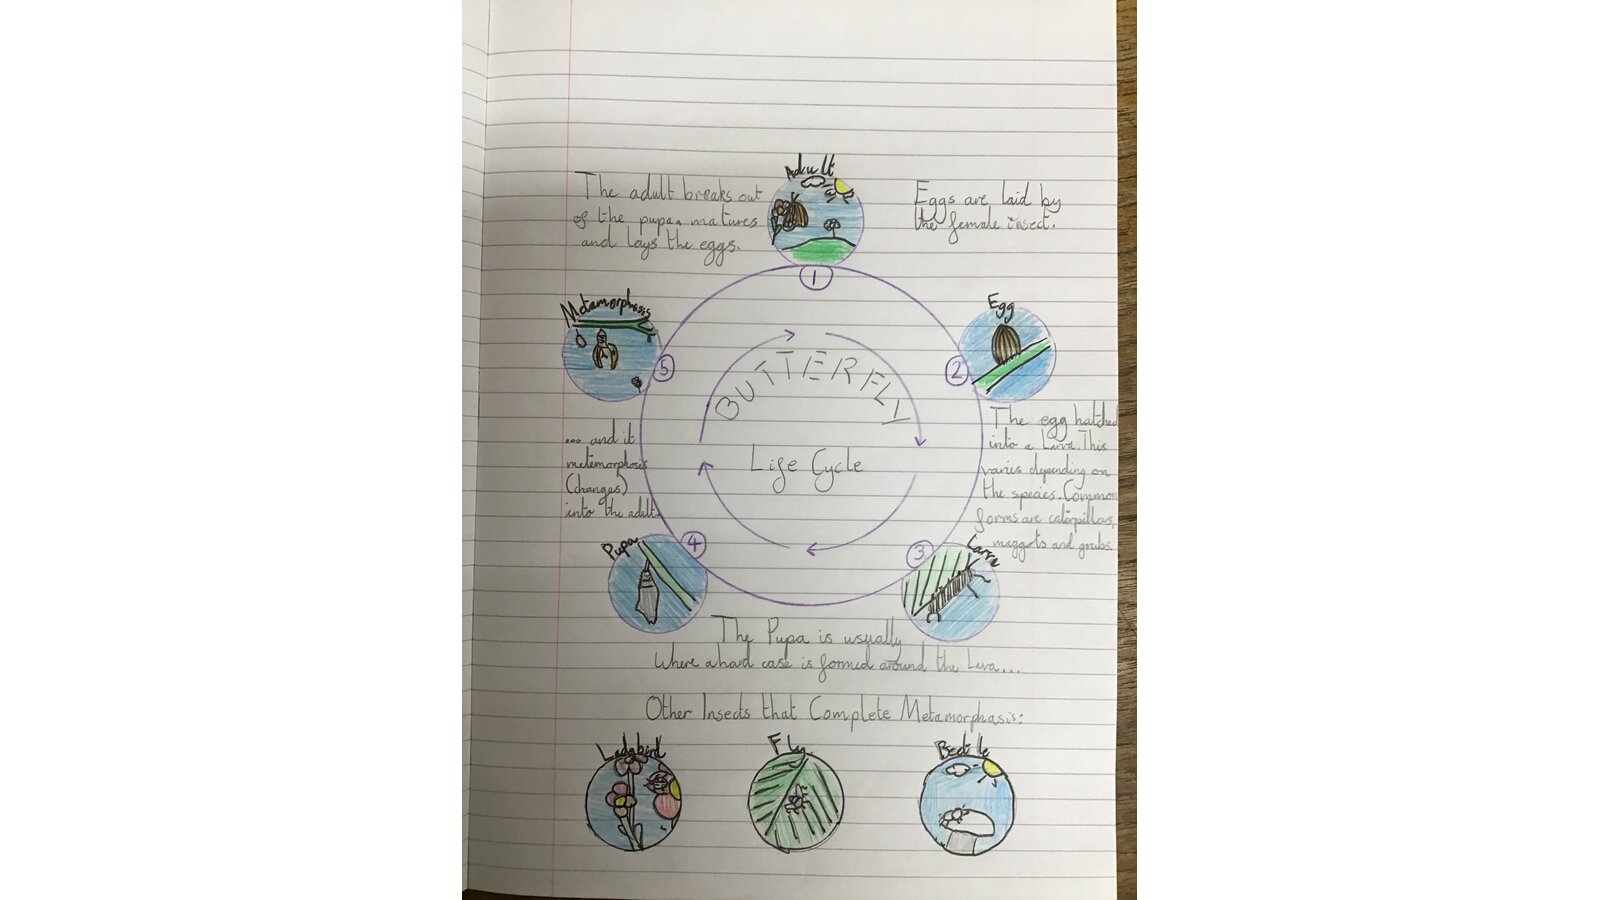 Adult
The adult breaks out
of the pupa, matures
and lays the eggs.
Eggs are laid by
the female insect.
1
Egg
2
The egg hatched
into a Larva. This
varies depending on
the species. Common
forms are caterpillars,
maggots and grubs.
Larva
3
The Pupa is usually
Where a hard case is formed around the Lava...
Pupa
4
... and it
metamorphosis
(changes)
into the adult.
Metamorphosis
5
BUTTERFLY
Life Cycle
Other Insects that Complete Metamorphasis:
Ladybird
Fly
Beetle